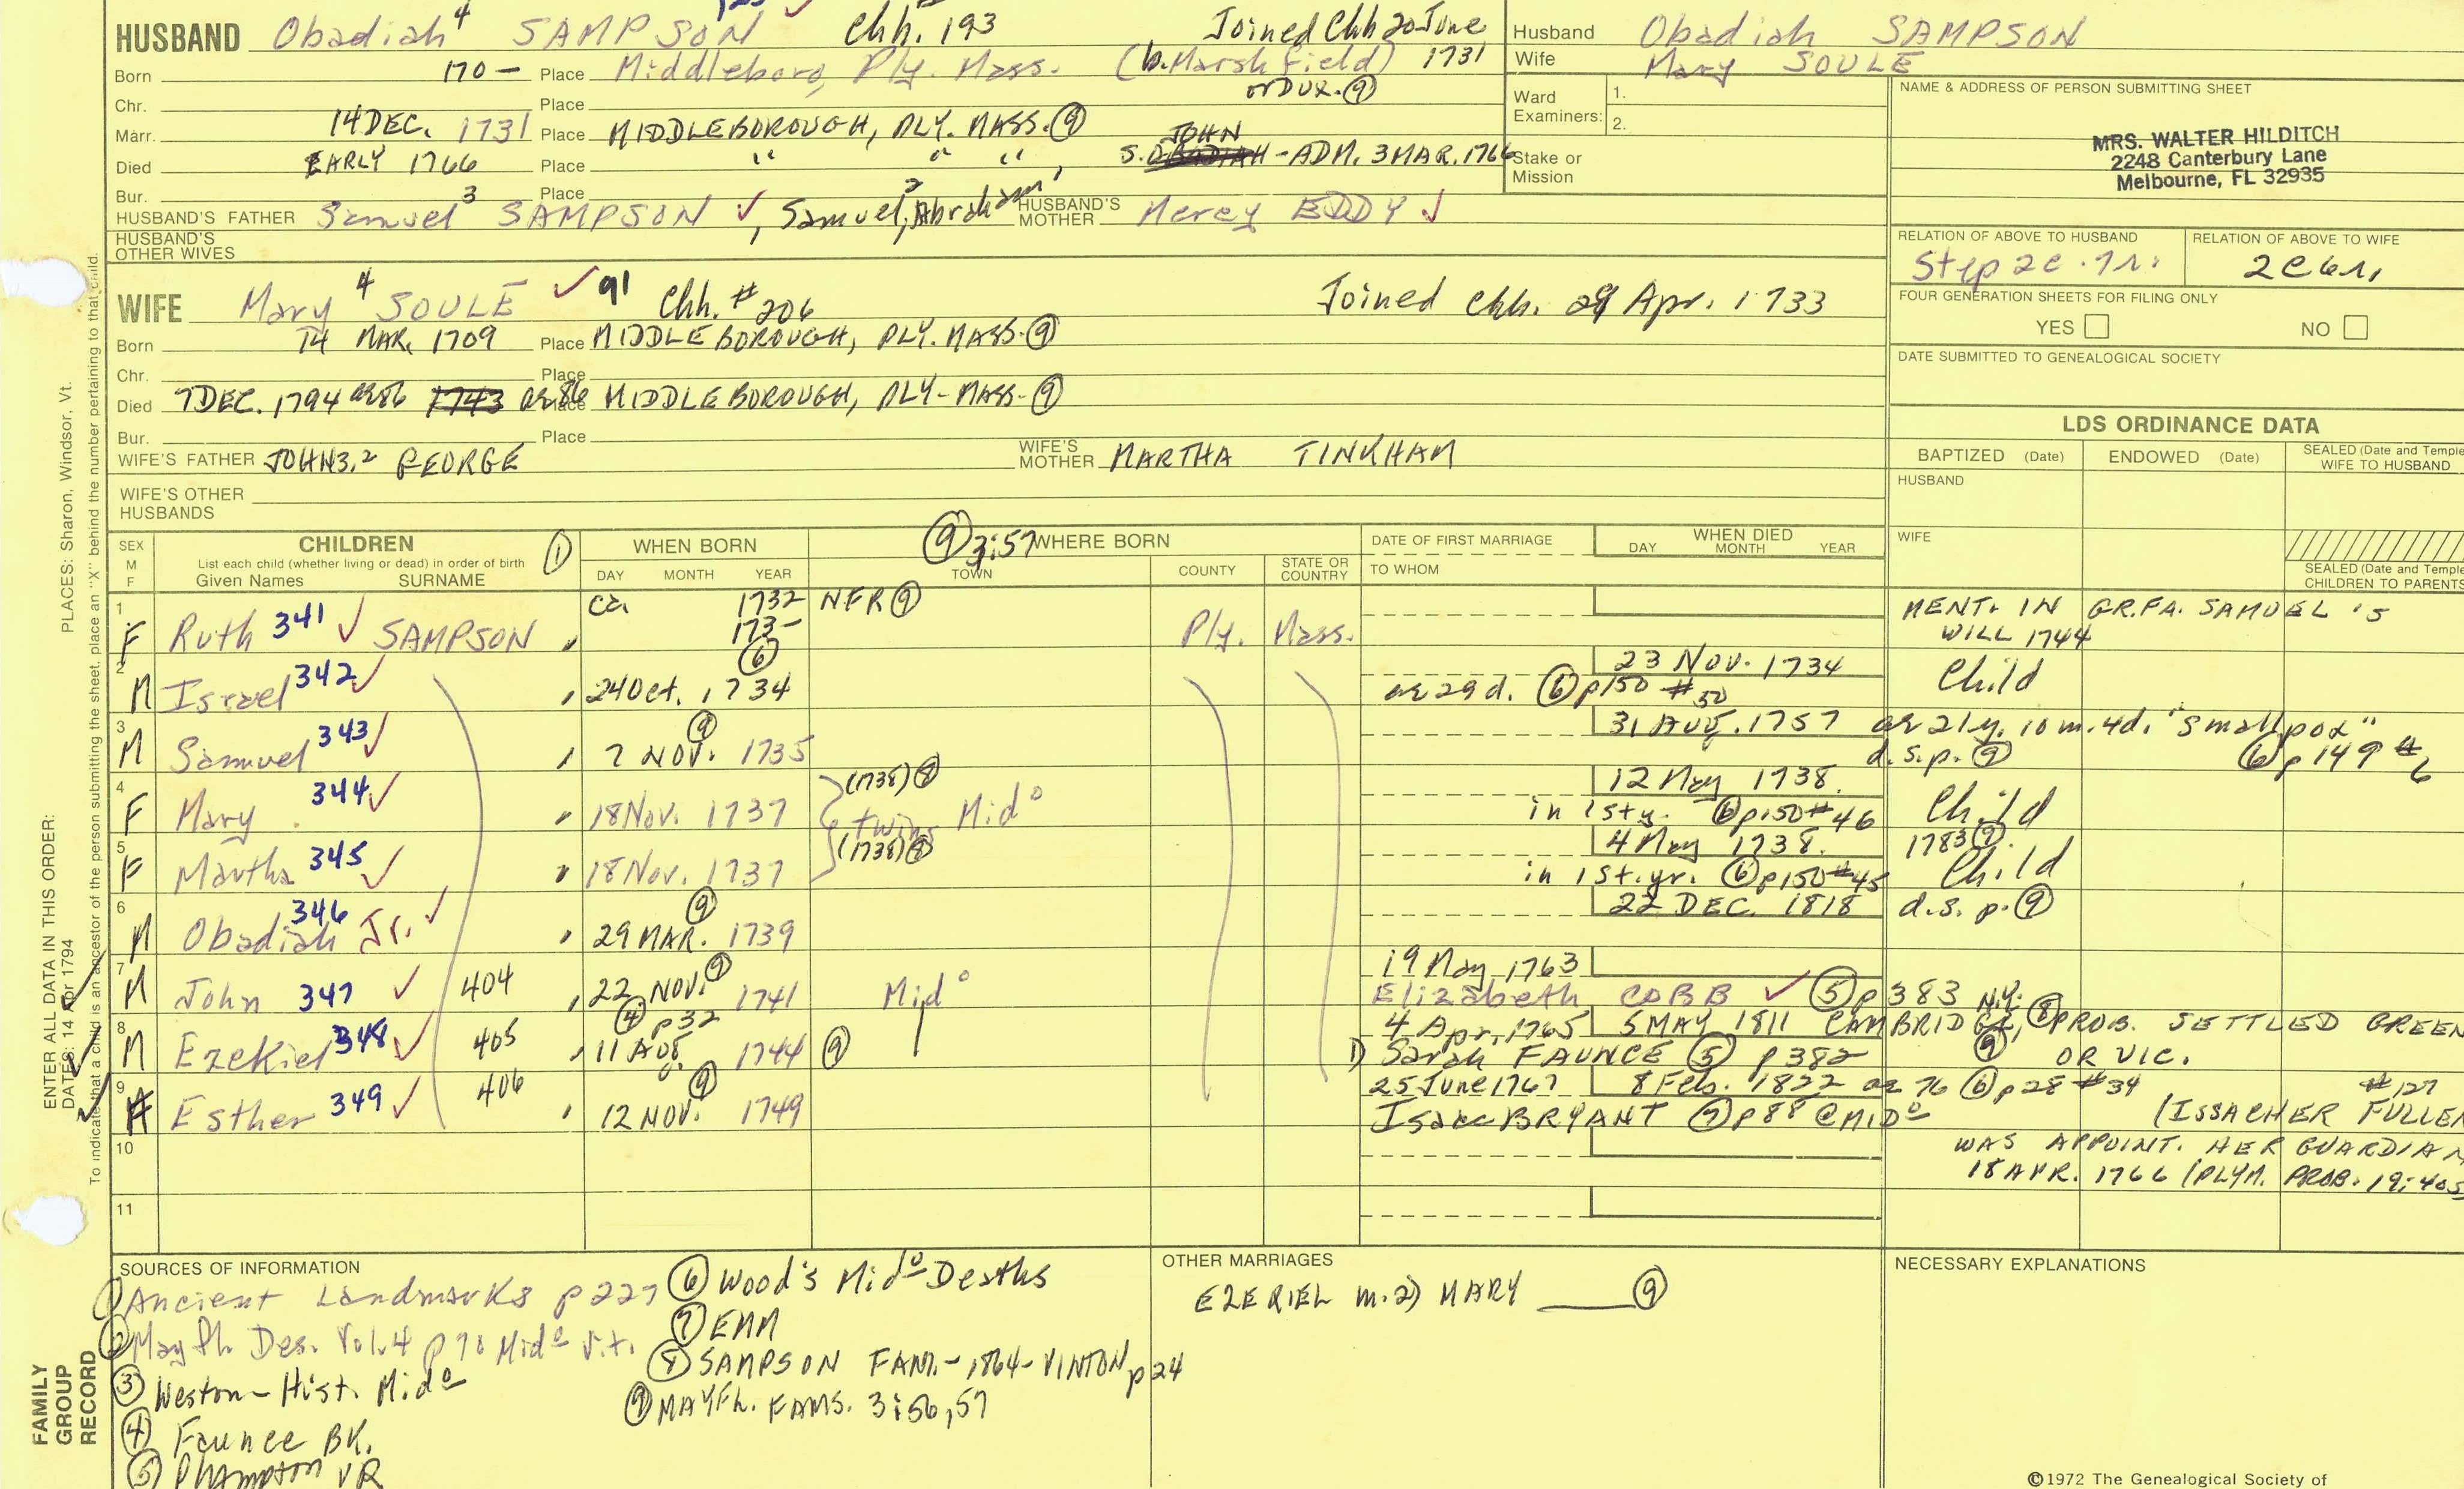 HUSBAND Obadiah 4 SAMPSON ✓ Chh. 193 Joined Chh 20 June 1731
Born 170- Place Middleboro, Ply. Mass. (b. Marshfield) or DUX. ⑨
Chr. Place
Marr. 14 DEC. 1731 Place MIDDLEBOROUGH, PLY. MASS. ⑨
Died EARLY 1766 Place " " " S. JOHN - ADM. 3 MAR. 1766
Bur. Place
HUSBAND'S FATHER Samuel 3 SAMPSON ✓, Samuel 2, Abraham 1 HUSBAND'S MOTHER Mercy EDDY ✓
HUSBAND'S OTHER WIVES
Husband Obadiah SAMPSON
Wife Mary SOULE
Ward Examiners: 1. 2.
Stake or Mission
NAME & ADDRESS OF PERSON SUBMITTING SHEET
MRS. WALTER HILDITCH
2248 Canterbury Lane
Melbourne, FL 32935
RELATION OF ABOVE TO HUSBAND RELATION OF ABOVE TO WIFE
Step 2c.7r. 2c6r.
FOUR GENERATION SHEETS FOR FILING ONLY
YES NO
DATE SUBMITTED TO GENEALOGICAL SOCIETY
WIFE Mary 4 SOULE ✓ 91 Chh. #206 Joined Chh. 29 Apr. 1733
Born 14 MAR. 1709 Place MIDDLEBOROUGH, PLY. MASS. ⑨
Chr. Place
Died 7 DEC. 1794 ae 86 1743 ae 86 Place MIDDLEBOROUGH, PLY-MASS. ⑨
Bur. Place
WIFE'S FATHER JOHN 3, 2 GEORGE WIFE'S MOTHER MARTHA TINKHAM
WIFE'S OTHER HUSBANDS
LDS ORDINANCE DATA
BAPTIZED (Date) ENDOWED (Date) SEALED (Date and Temple WIFE TO HUSBAND
HUSBAND
WIFE
SEALED (Date and Temple CHILDREN TO PARENTS
SEX M F CHILDREN ① WHEN BORN ⑨ 3:57 WHERE BORN DATE OF FIRST MARRIAGE WHEN DIED
List each child (whether living or dead) in order of birth
Given Names SURNAME DAY MONTH YEAR TOWN COUNTY STATE OR COUNTRY TO WHOM DAY MONTH YEAR
1 F Ruth 341 ✓ SAMPSON ca. 1732 173- NFR ⑨ Ply. Mass. MENT. IN GR.FA. SAMUEL'S WILL 1744
2 M Israel 342 ✓ 24 Oct. 1734 ⑥ 23 Nov. 1734 Child
ae 29 d. ⑥ p150 #50
3 M Samuel 343 ✓ 7 NOV. ⑨ 1735 31 AUG. 1757 ae 21y. 10 m. 4d. "smallpox"
d.s.p. ⑨ ⑥ p149 #6
4 F Mary 344 ✓ 18 Nov. 1737 (1738) ⑧ twins Mid° 12 May 1738. Child
in 1st y. ⑥ p150 #46
5 F Martha 345 ✓ 18 Nov. 1737 (1738) ⑧ 4 May 1738. 1783 ⑨. Child
in 1st. yr. ⑥ p150 #45
6 M Obadiah Jr. 346 ✓ 29 MAR. ⑨ 1739 22 DEC. 1818 d.s.p. ⑨
7 M John 347 ✓ 404 22 NOV. ⑨ 1741 Mid° 19 May 1763
Elizabeth COBB ✓ ⑤ p383
8 M Ezekiel 348 ✓ 405 ④ p32 11 AUG. 1744 ⑨ 4 Apr. 1765 5 MAY 1811 CAMBRIDGE, N.Y. ⑧ PROB. SETTLED GREEN
1) Sarah FAUNCE ⑤ p382 ⑨ OR VIC.
9 F Esther 349 ✓ 406 12 NOV. ⑨ 1749 25 June 1767 8 Feb. 1822 ae 76 ⑥ p28 #34 #127
Isaac BRYANT ⑦ p88 @ MID° (ISSACHER FULLER
WAS APPOINT. HER GUARDIAN
18 APR. 1766 (PLYM. PROB. 19:405
10
11
SOURCES OF INFORMATION
① Ancient Landmarks p227
② Mayfl. Des. Vol. 4 p70 Mid° v.r.
③ Weston-Hist. Mid°
④ Faunce BK.
⑤ Plympton VR
⑥ Wood's Mid° Deaths
⑦ EMM
⑧ SAMPSON FAM.-1864-VINTON p24
⑨ MAYFL. FAMS. 3:56,57
OTHER MARRIAGES
EZEKIEL m. 2) MARY ____ ⑨
NECESSARY EXPLANATIONS
©1972 The Genealogical Society of
ENTER ALL DATA IN THIS ORDER:
DATES: 14 Apr 1794
PLACES: Sharon, Windsor, Vt.
To indicate that a child is an ancestor of the person submitting the sheet, place an "X" behind the number pertaining to that child.
FAMILY GROUP RECORD